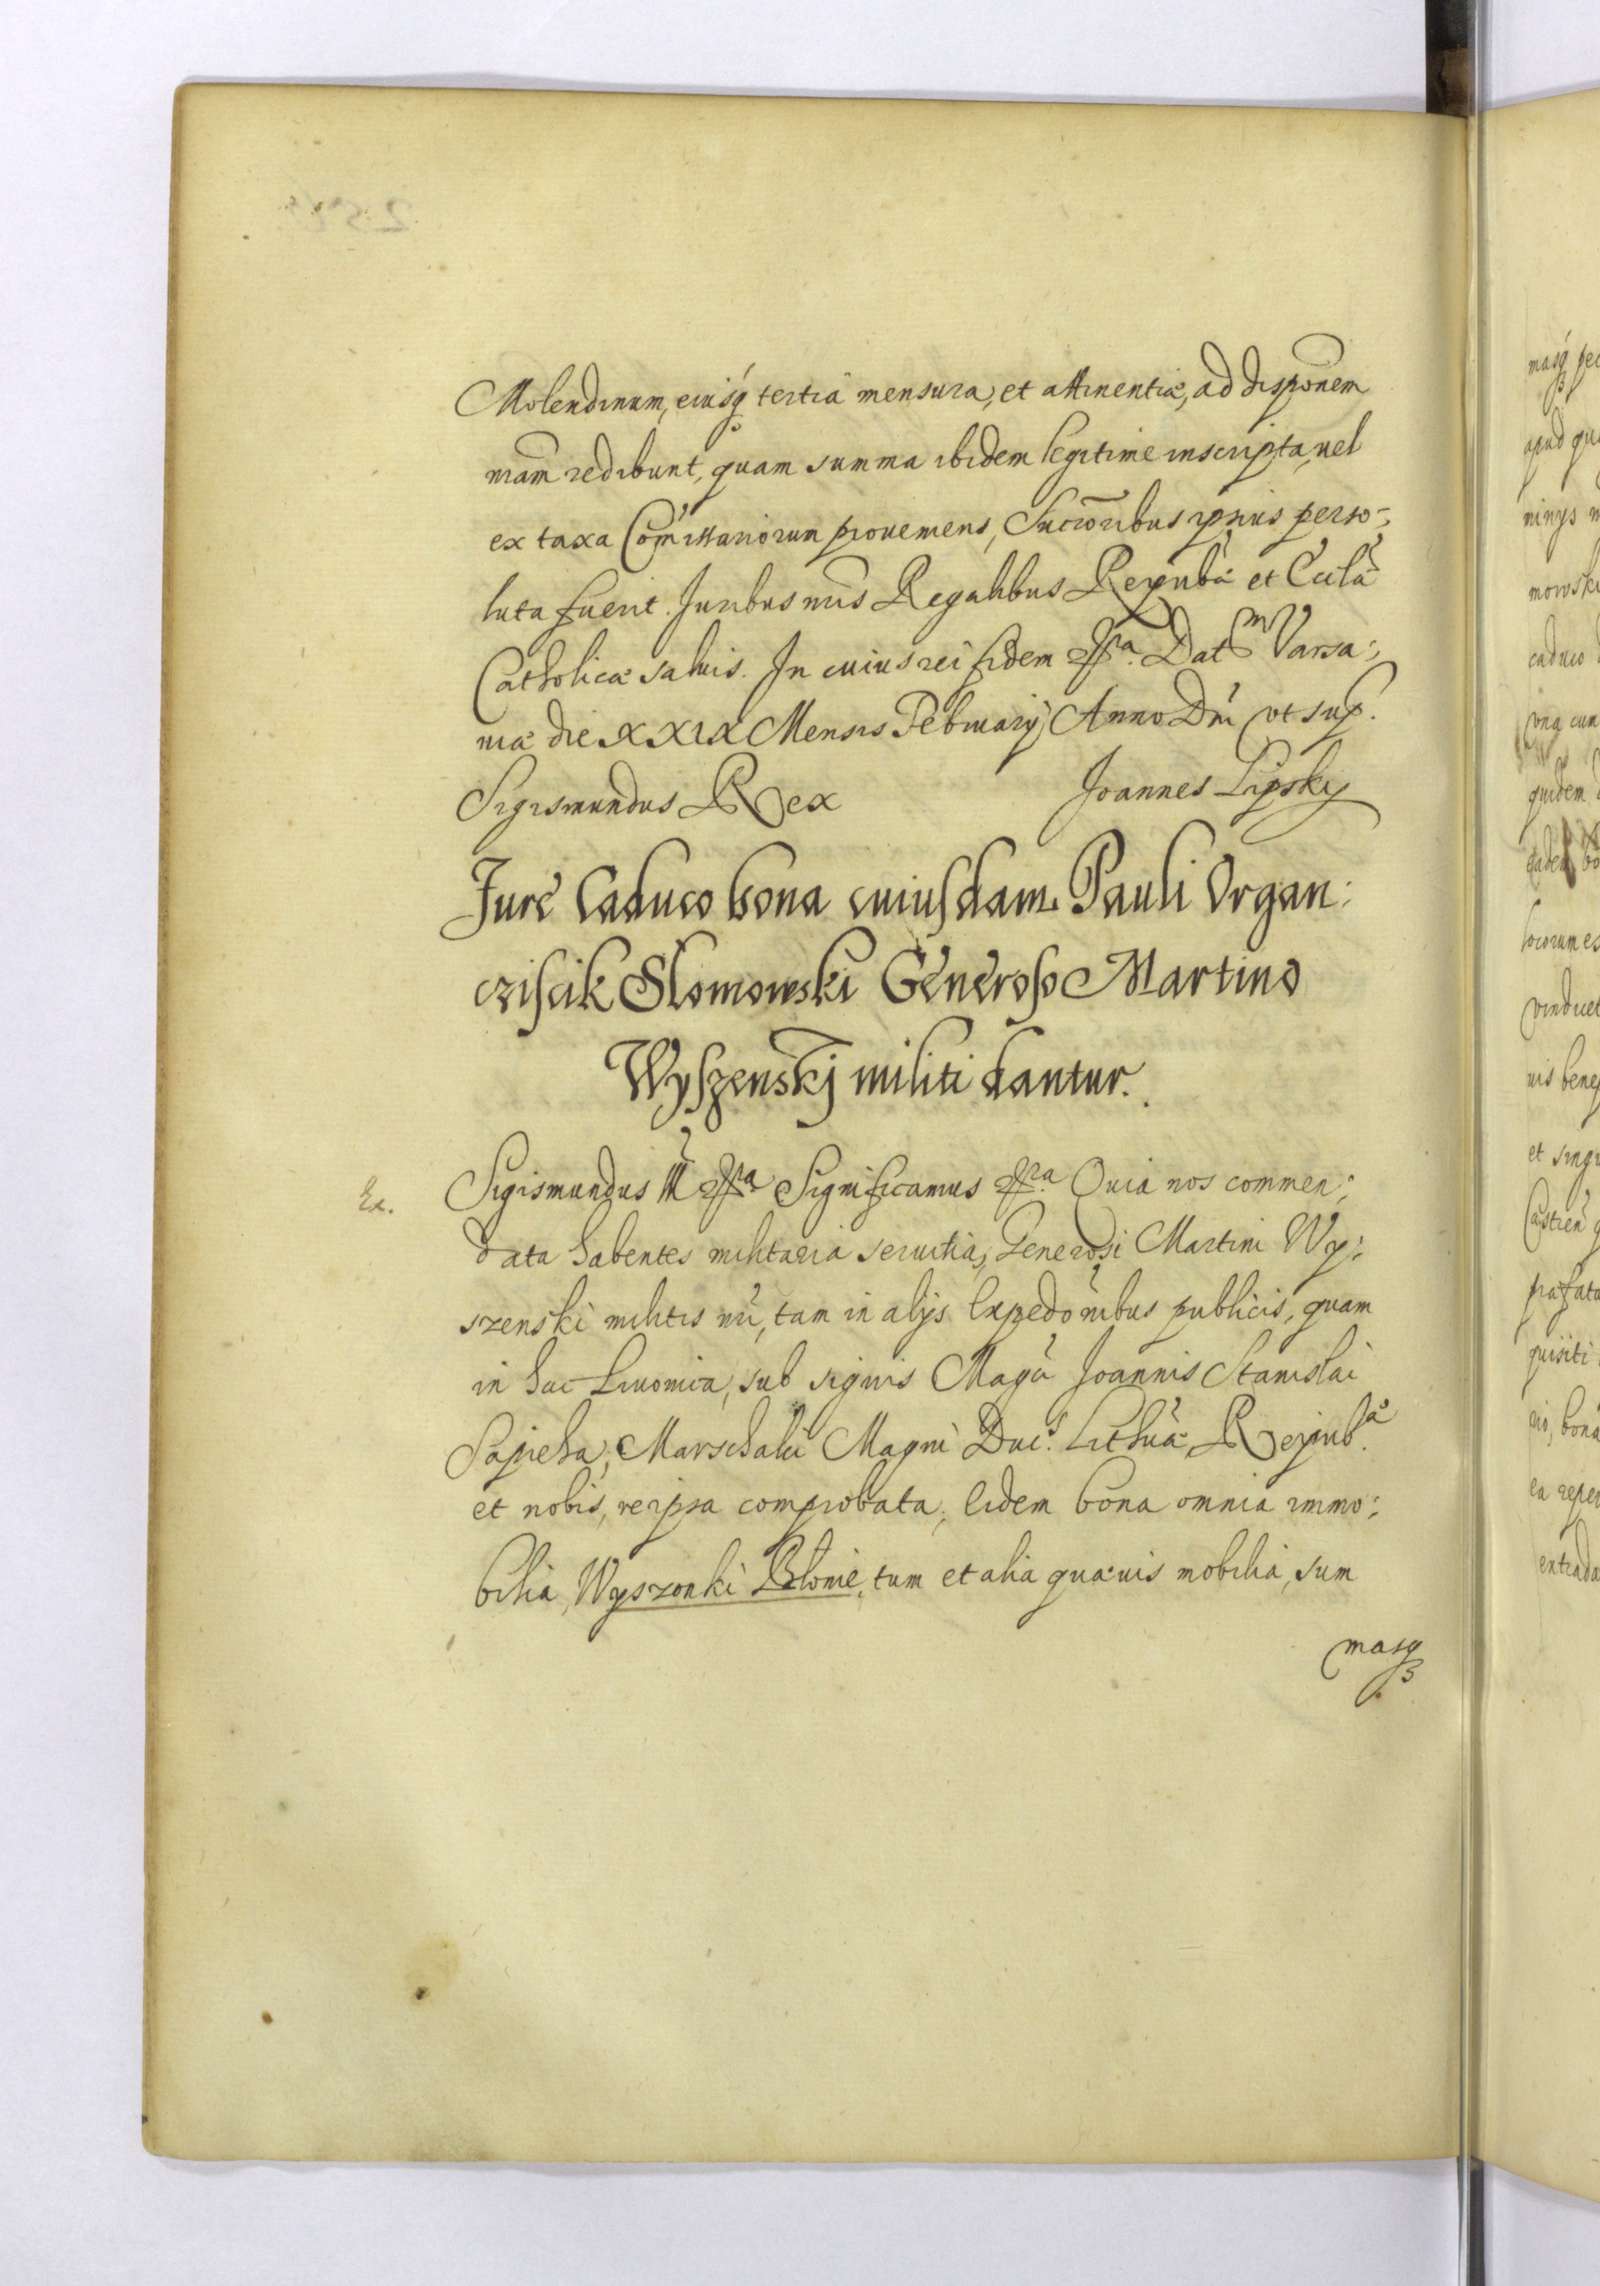 Molendinum, eiusq́ tertia mensura, et attinentiæ, ad disponem
nram̄ redibunt, quam summa ibidem legitime inscripta, uel
ex taxa Com̄issariorum proueniens, Succōribus ipsius perso-
luta fuerit. Juribus nris Regalibus Reipubæ et Ecclæ
Catholicæ saluis. In cuius rei fidem etca. Datm Varsa:
uiæ die XXIX Mensis Februarÿ Anno Dni vt sup.
Sigismundus Rex Joannes Lipsky
Jure Caduco bona cuiusdam Pauli Organ:
cziscik Slomowski Generoso Martino
Wyszenskj militi dantur.
Ex. Sigismundus III etca. Significamus etca. Quia nos commen:
data habentes militaria seruitia, Generosi Martini Wy:
szenski militis nri, tam in alÿs Expedōnibus publicis, quam
in hac Liuonica, sub signis Magci Joannis Stanislai
Sapieha, Marschalci Magni Ducs. Lithuæ, Reipub.æ
et nobis, reipsa comprobata, Eidem bona omnia immo:
bilia, Wyszonki Blonie, tum et alia quæuis mobilia, sum
masq